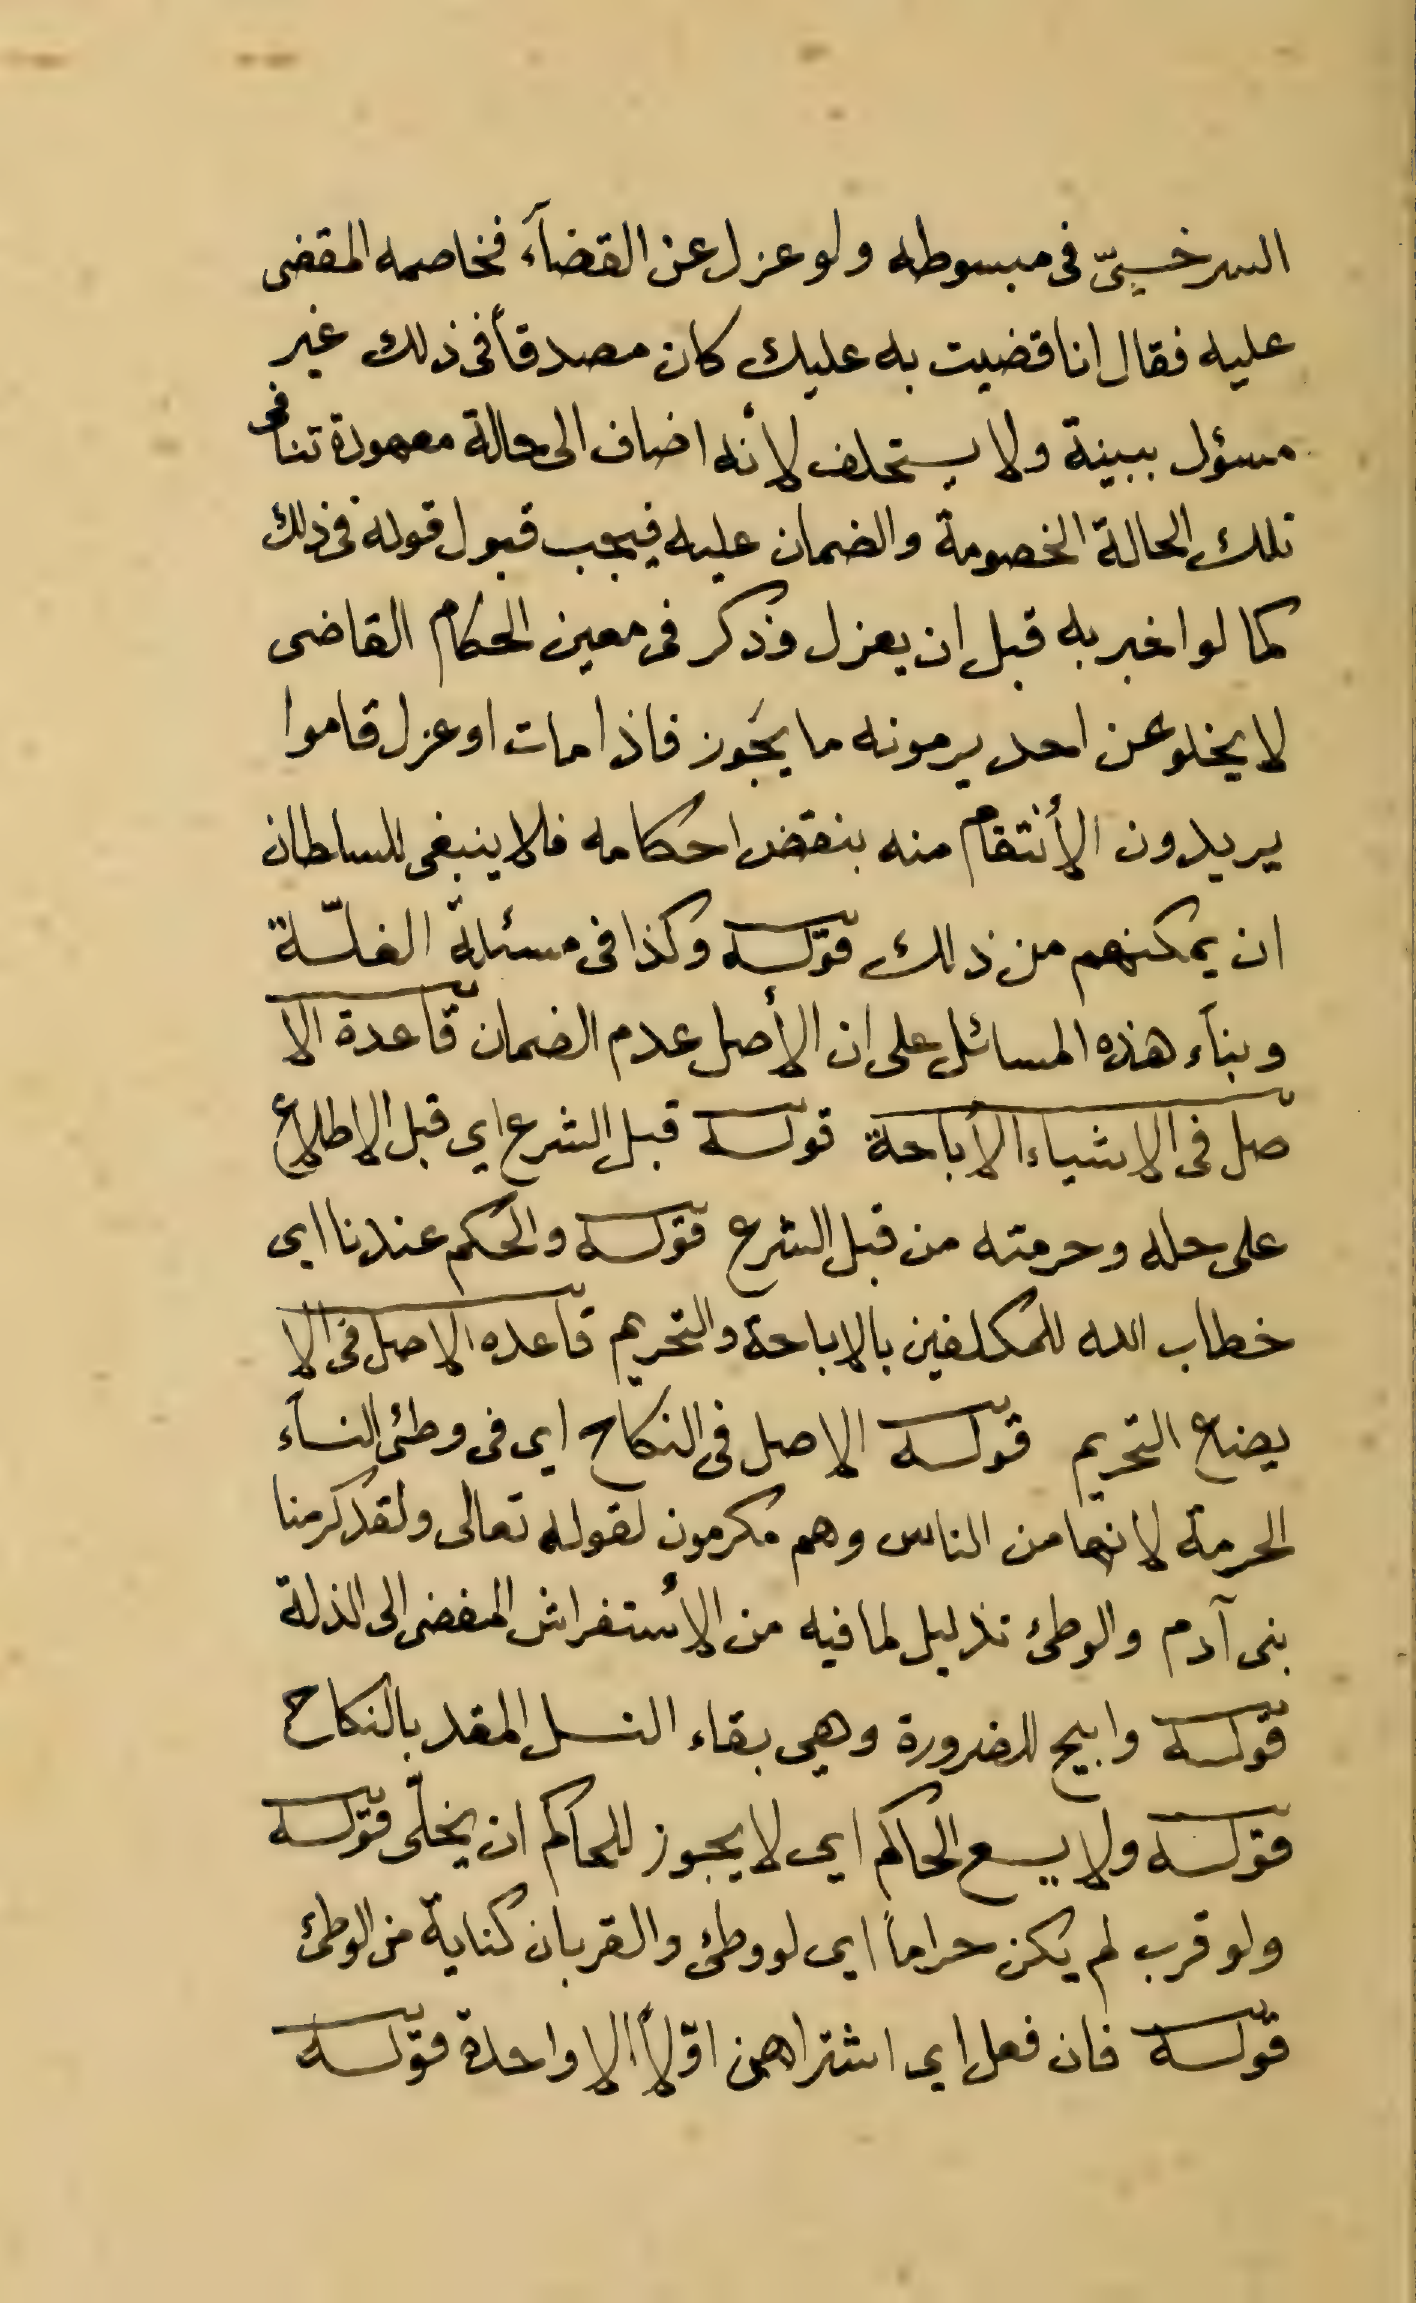 السرخسيّ فى مبسوطه ولو عزل عن القضآء فخاصمه المقضى
عليه فقال انا قضيت به عليك كان مصدقاً فى ذلك غير
مسؤل ببينة ولا يستحلف لأنه اضاف الى حالة معهودة تنافى
تلك الحالة الخصومة والضمان عليه فيجب قبول قوله فى ذلك
كما لو اخبر به قبل ان يعزل وذكر فى معين الحكام القاضى
لا يخلو عن احد يرمونه ما يجَوز فاذا مات او عزل قاموا
يريدون الأنتقام منه بنقض احكامه فلا ينبغى للسلطان
ان يمكنهم من ذلك قوله وكذا فى مسئلة الغلّة
وبنآء هذه المسائل على ان الأصل عدم الضمان قاعدة الا
صل فى الاشياء الأباحة قوله قبل الشرع اى قبل الاطلاع
على حله وحرمته من قبل الشرع قوله والحكم عندنا اى
خطاب الله للمكلفين بالاباحة والتحريم قاعده الاصل فى الا
بضاع التحريم قوله الاصل فى النكاح اى فى وطئ النسآء
الحرمة لانها من الناس وهم مكرمون لقوله تعالى ولقد كرمنا
بنى آدم والوطئ تذليل لما فيه من الأستفراش المفضى الى الذلة
قوله وابيح للضرورة وهى بقاء النسل المقد بالنكاح
قوله ولا يسع الحاكم اى لا يجوز للحاكم ان يخلّى قوله
ولو قرب لم يكن حراماً اى لو وطئ والقربان كناية من الوطئ
قوله فان فعل اى اشتراهن اوّلاً الا واحدة قوله